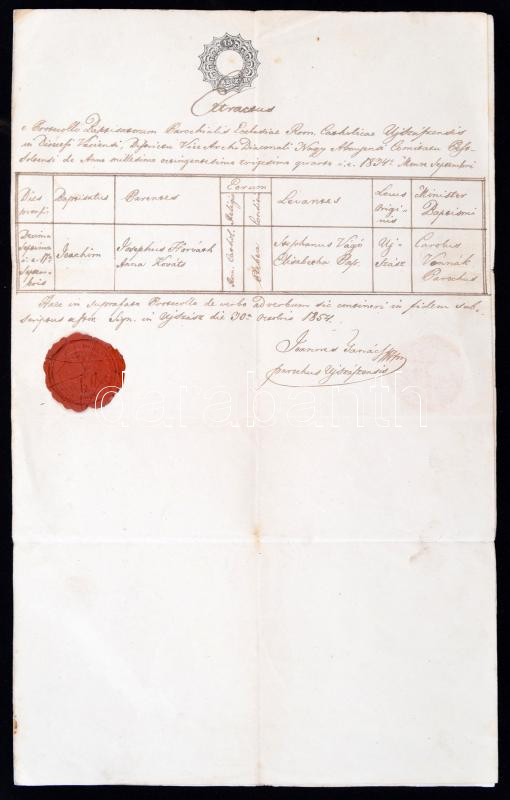 Extractus
e Protocollo Baptisatorum Parochialis Ecclesiae Rom. Catholicae Ujszászensis
in Dioecesi Vaciensi, Districtu Vice Archi Diaconali Nagy Abonyensi Comitatu Pest
Solt
de Anno millesimo octingentesimo trigesimo quarto i.e. 1834. Mense Septembri
Dies
Baptisatus
Parentes
Eorum
Religio
Conditio
Levantes
Locus
Origi-
nis
Minister
Baptismi
Decima
Septima
i.e. 17a
Septem-
bris
Joachim
Josephus Horváth
Anna Kováts
Rom. Cathol.
Plebea
Stephanus Vágó
Elisabetha
Uj-
szász
Carolus
Parochus
Haec in suprafato Protocollo de verbo ad verbum sic contineri in fidem sub-
scriptus Sign. in Ujszász die 30a Octobris 1854.
Joannes
parochus Ujszászensis
darabanth